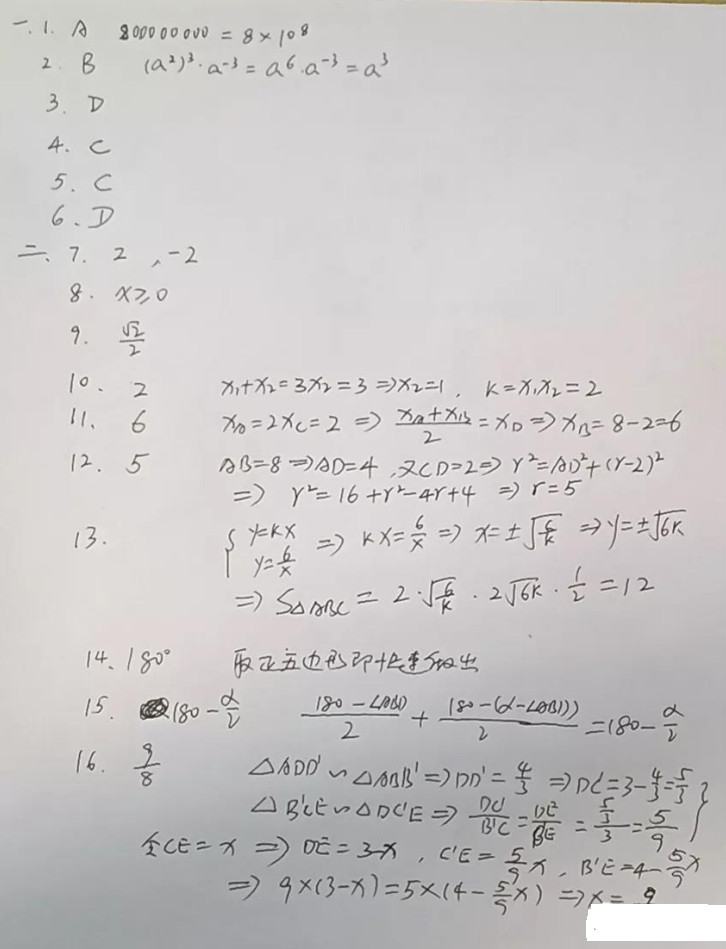 一. 1. A 800000000 = 8×10⁸
2. B (a²)³·a⁻³ = a⁶·a⁻³ = a³
3. D
4. C
5. C
6. D
二、7. 2 , -2
8. x≥0
9. √2/2
10. 2 x₁+x₂=3x₂=3 ⇒x₂=1, k=x₁x₂=2
11. 6 x_D=2x_C=2 ⇒ (x_A+x_B)/2=x_D⇒x_B=8-2=6
12. 5 AB=8⇒AD=4, 又CD=2⇒ r²=AD²+(r-2)²
⇒ r²=16+r²-4r+4 ⇒r=5
13. { y=kx y=6/x ⇒ kx=6/x ⇒ x=±√(6/k) ⇒y=±√6k
⇒ S△ABC = 2·√(6/k) · 2√6k · 1/2 = 12
14、180° 取正五边形即
15. 180-α/2 (180-∠ABD)/2 + (180-(α-∠ABD))/2 =180-α/2
16. 9/8 △ADD'∽△ABB'⇒DD'=4/3 ⇒DC'=3-4/3=5/3
△B'CE∽△DC'E ⇒ DC'/B'C=DE/B'E = (5/3)/3=5/9
令CE=x ⇒ DE=3-x , C'E=5/9x, B'E=4-5/9x
⇒ 9×(3-x)=5×(4-5/9x) ⇒x= 9